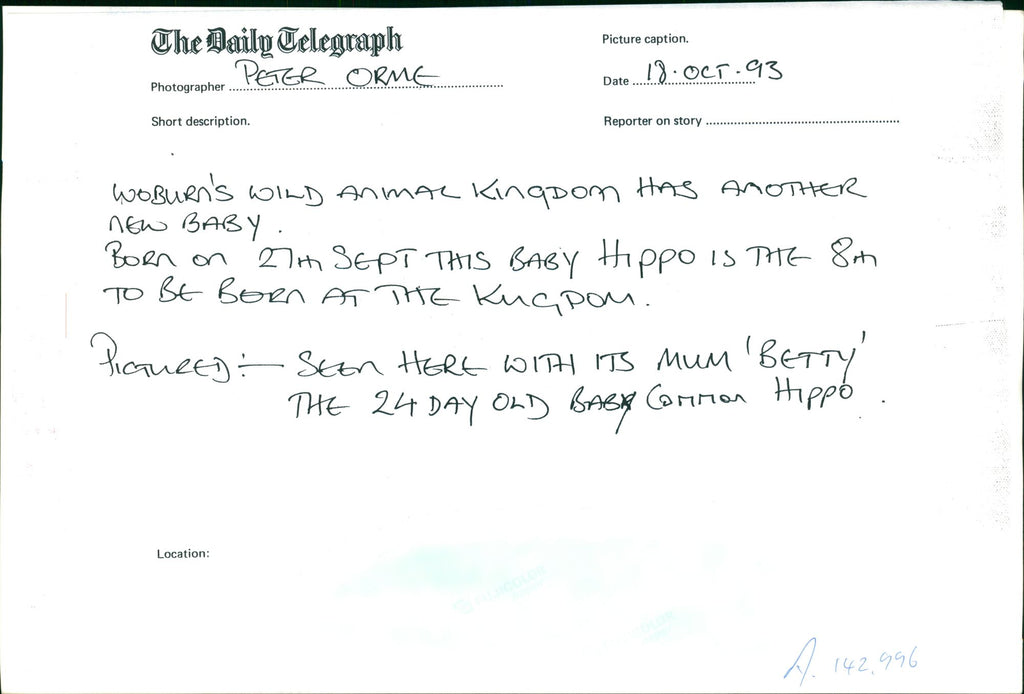 The Daily Telegraph
Picture caption.
Photographer PETER ORME
Date 18·OCT·93
Short description.
Reporter on story
WOBURN'S WILD ANIMAL KINGDOM HAS ANOTHER
NEW BABY.
BORN ON 27TH SEPT THIS BABY HIPPO IS THE 8TH
TO BE BORN AT THE KINGDOM.
PICTURED:— SEEN HERE WITH ITS MUM 'BETTY'
THE 24 DAY OLD BABY COMMON HIPPO.
Location:
FUJICOLOR
A. 142,996